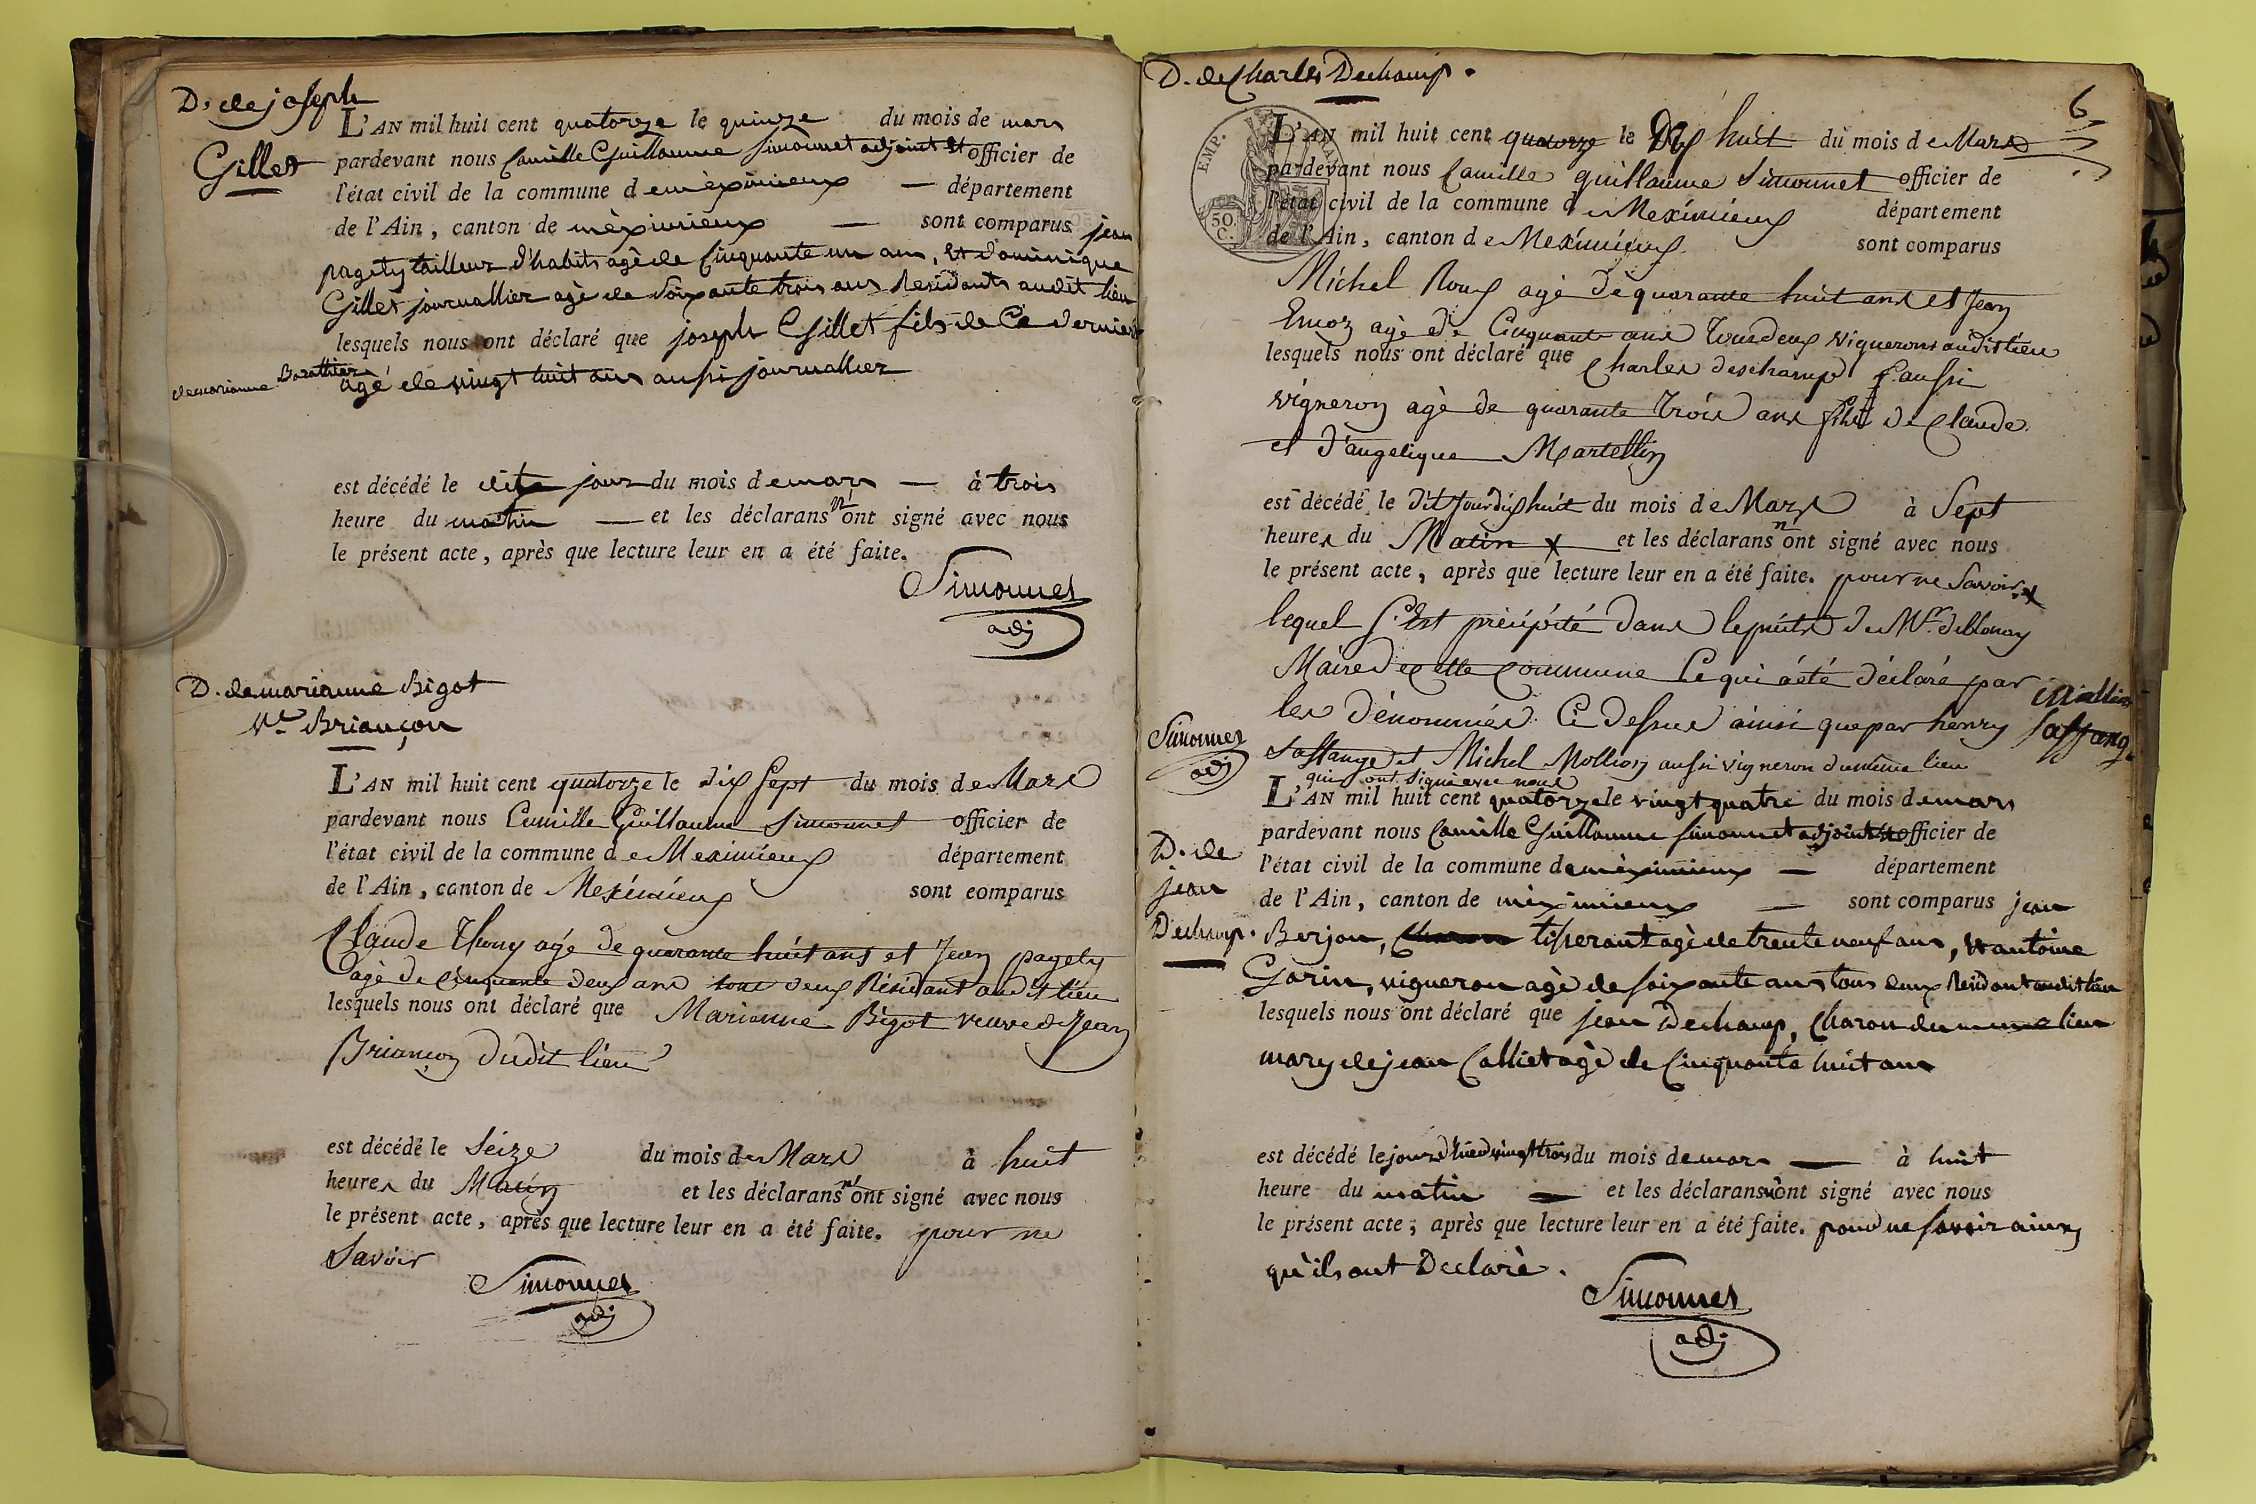 D. de joseph
Gillet
L'AN mil huit cent quatorze le quinze du mois de mars
pardevant nous Camille Guillaume Simonnet adjoint et officier de
l'état civil de la commune de mèximieux — département
de l'Ain, canton de mèximieux — sont comparus jean
pagety tailleur d'habits agè de Cinquante un ans, et dominique
Gillet journallier agè de Soixante trois ans Residants audit lieu
lesquels nous ont déclaré que joseph Gillet fils de Ce dernier
de marianne Barathier
agé de vingt huit ans aussi journallier
est décédé le dite jour du mois de mars — à trois
heure du matin — et les déclarans n'ont signé avec nous
le présent acte, après que lecture leur en a été faite.
Simonnet
adj
D. de marianne Bigot
Ve Briançon
L'AN mil huit cent quatorze le dix Sept du mois de Mars
pardevant nous Camille Guillaume Simonnet officier de
l'état civil de la commune de Meximieux département
de l'Ain, canton de Meximieux sont comparus
Claude Thony agé de quarante huit ans et Jean pagety
agé de cinquante deux ans tous deux Résidant audit lieu
lesquels nous ont déclaré que Marianne Bigot veuve de Jean
Briançon dudit lieu
est décédé le Seize du mois de Mars à huit
heures du Matin et les déclarans n'ont signé avec nous
le présent acte, après que lecture leur en a été faite. pour ne
Savoir
Simonnet
adj
D. de Charles Dechamp.
6
EMP.
50 C.
L'AN mil huit cent quatorze le Dix huit du mois de Mars
pardevant nous Camille guillaume Simonnet officier de
l'état civil de la commune de Meximieux département
de l'Ain, canton de Meximieux sont comparus
Michel Roux agé de quarante huit ans et Jean
agé de Cinquante ans Tous deux vignerons audit lieu
lesquels nous ont déclaré que Charles deschamps aussi
vigneron agè de quarante Trois ans fils de Claude
et d'angelique Martellin
est décédé le Dit Jour dix huit du mois de Mars à Sept
heures du Matin x et les déclarans n'ont signé avec nous
le présent acte, après que lecture leur en a été faite. pour ne Savoir. x
lequel s'Est précipité dans le puits de Mr. deblonay
Maire de cette Commune Ce qui a été déclaré par
les dénommés Ci dessus ainsi que par henry
Saffange et Michel Mollion aussi vigneron du même lieu
qui ont Signé avec nous
Mollion
Saffang.
Simonnet
adj
D. de
jean
Dechamp.
L'AN mil huit cent quatorze le vingt quatre du mois de mars
pardevant nous Camille Guillaume Simonnet adjoint et officier de
l'état civil de la commune de mèximieux — département
de l'Ain, canton de mèximieux — sont comparus jean
Berjon, Charon tisserant agè de trente neuf ans, et antoine
Gorin, vigneron agè de soixante ans tous deux Residant audit lieu
lesquels nous ont déclaré que jean Dechamp, Charon du meme lieu
mary de jean Calliet agè de Cinquante huit ans
est décédé le jour d'hier vingt trois du mois de mars — à huit
heure du matin — et les déclarans n'ont signé avec nous
le présent acte, après que lecture leur en a été faite. pour ne savoir ainsy
qu'ils ont Declarè.
Simonnet
adj